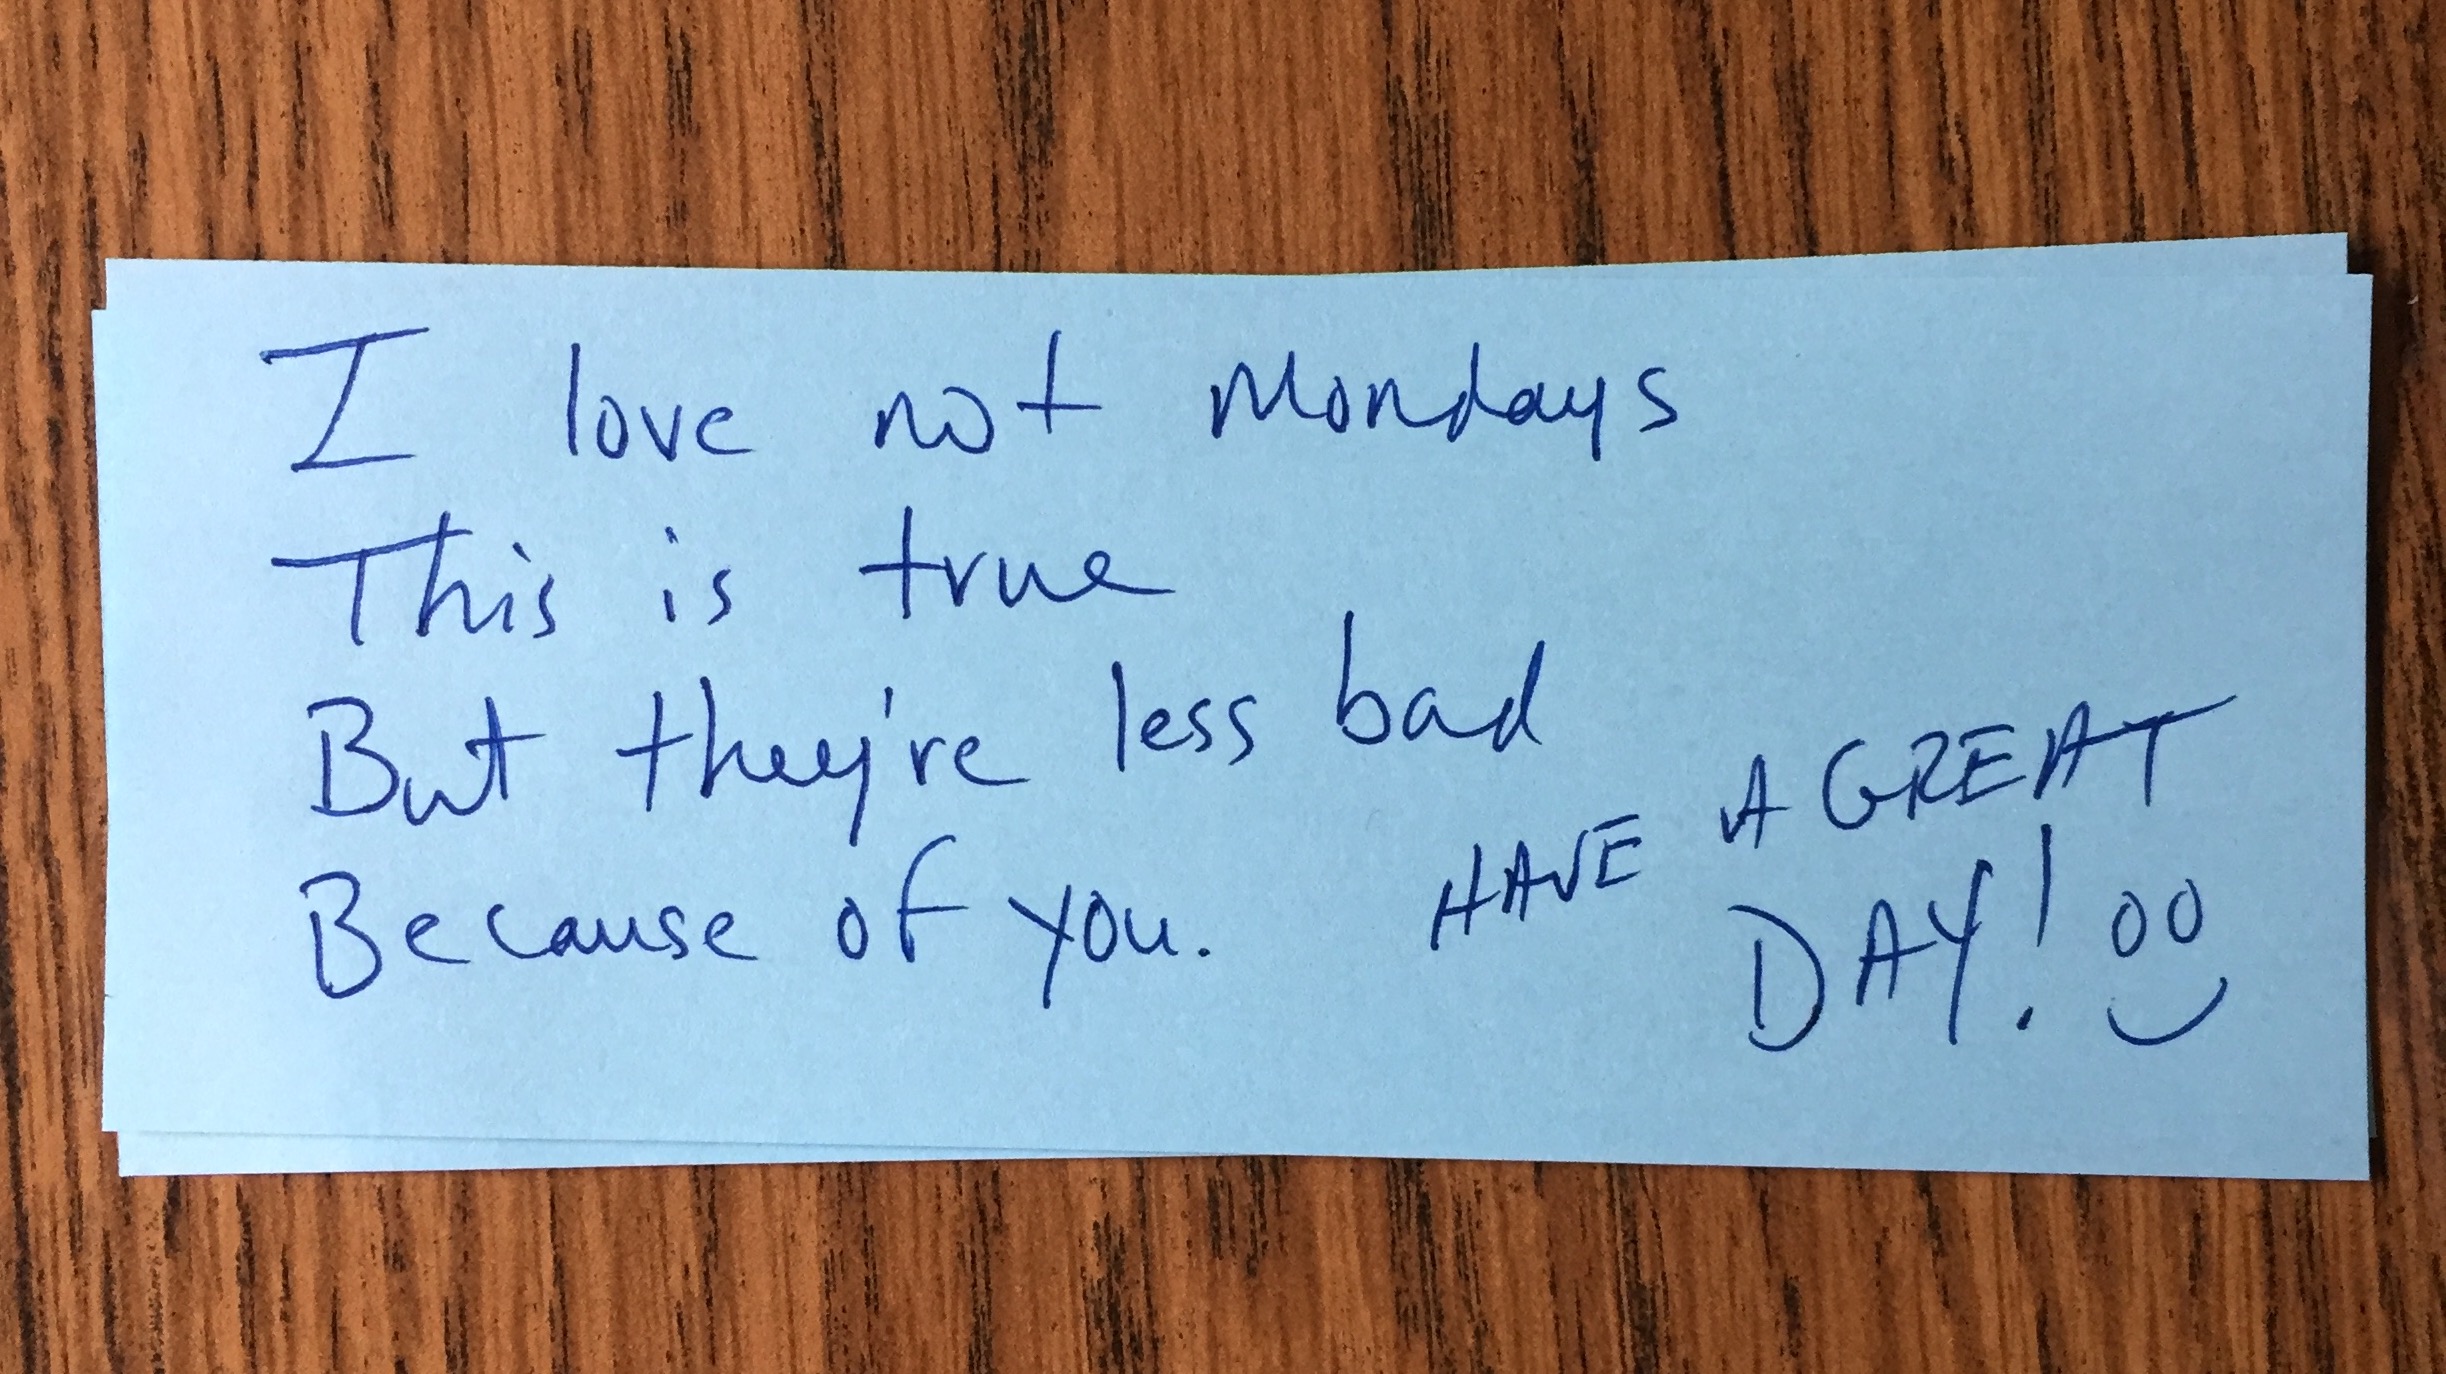 I love not Mondays
This is true
But they're less bad
Because of you.
HAVE A GREAT
DAY!